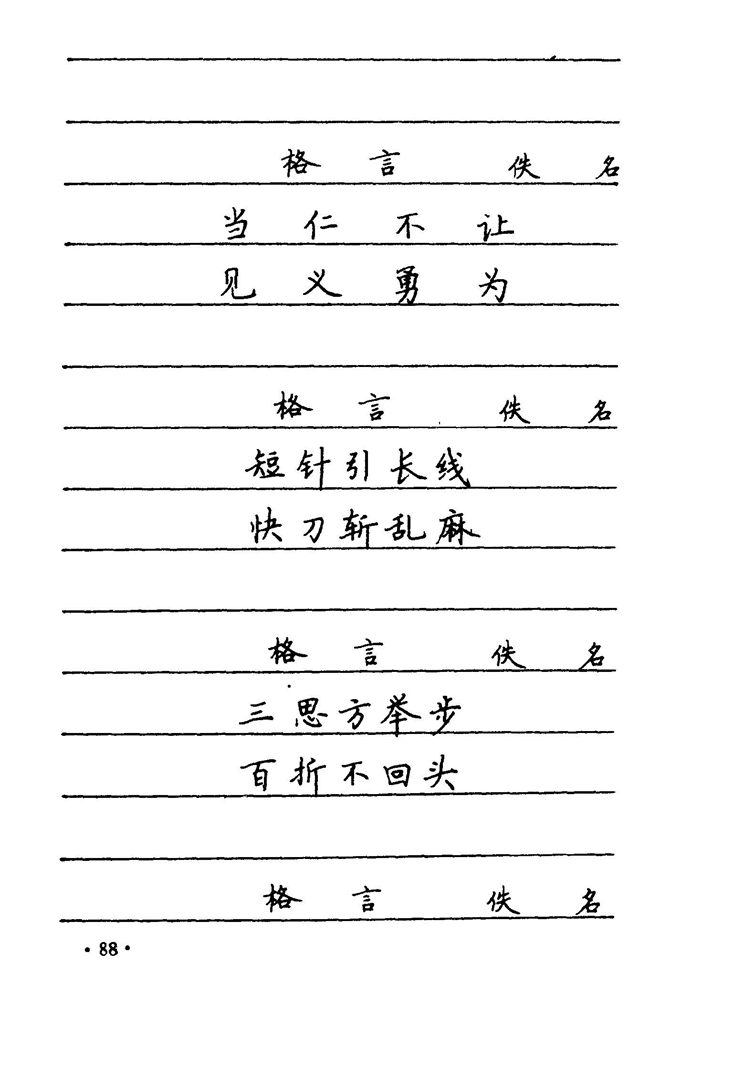 格言 佚名
当仁不让
见义勇为
格言 佚名
短针引长线
快刀斩乱麻
格言 佚名
三思方举步
百折不回头
格言 佚名
·88·